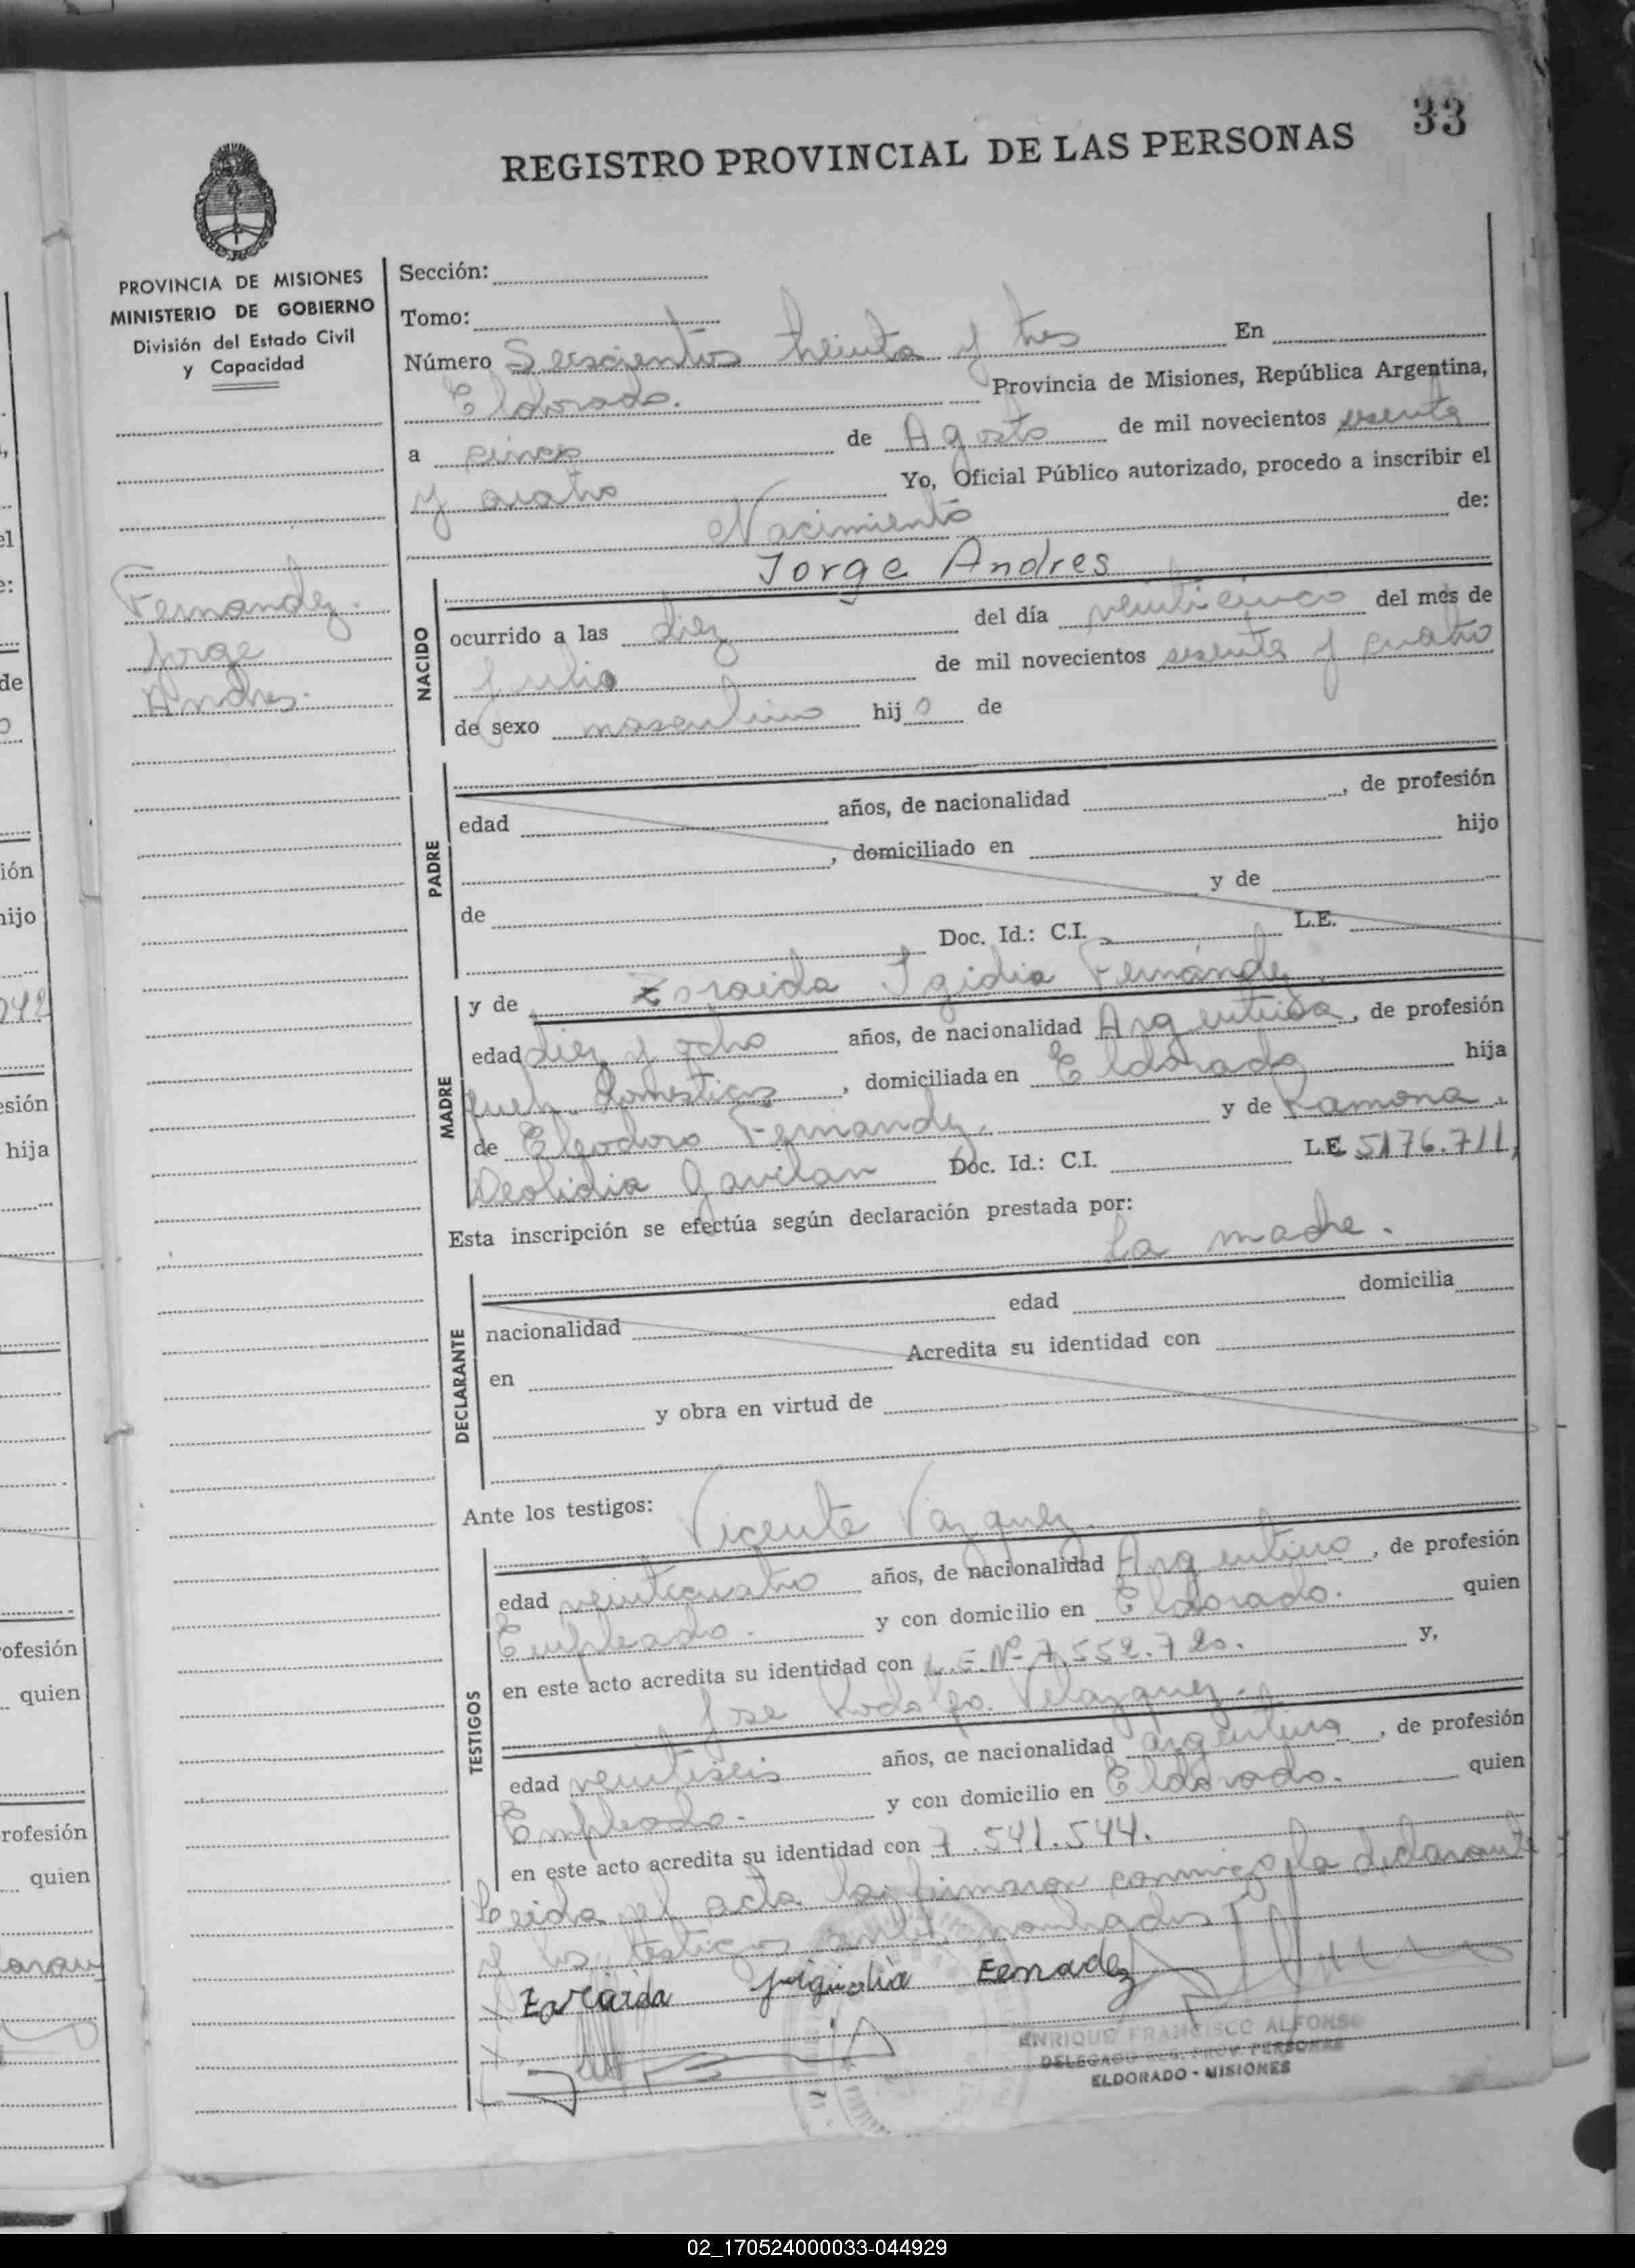 33
REGISTRO PROVINCIAL DE LAS PERSONAS
PROVINCIA DE MISIONES
MINISTERIO DE GOBIERNO
División del Estado Civil
y Capacidad
Fernandez.
Jorge
Andres.
Sección:
Tomo:
Número Seiscientos treinta y tres En
Eldorado. Provincia de Misiones, República Argentina,
a cinco de Agosto de mil novecientos sesenta
y cuatro Yo, Oficial Público autorizado, procedo a inscribir el
Nacimiento de:
Jorge Andres
NACIDO
ocurrido a las diez del día veinticinco del mes de
Julio de mil novecientos sesenta y cuatro
de sexo masculino hijo de
PADRE
edad años, de nacionalidad , de profesión
, domiciliado en hijo
de y de
Doc. Id.: C.I. L.E.
MADRE
y de Zoraida Igidia Fernández.
edad diez y ocho años, de nacionalidad Argentina, de profesión
queh. domesticos, domiciliada en Eldorado hija
de Eleodoro Fernandez. y de Ramona
Deolidia Gavilan Doc. Id.: C.I. L.E. 5176.711,
Esta inscripción se efectúa según declaración prestada por:
La madre.
DECLARANTE
nacionalidad edad domicilia
en Acredita su identidad con
y obra en virtud de
Ante los testigos: Vicente Vazquez.
TESTIGOS
edad veinticuatro años, de nacionalidad Argentino, de profesión
Empleado. y con domicilio en Eldorado. quien
en este acto acredita su identidad con L.E. Nº 7.552.720. y,
Jose Rodolfo Velazquez.
edad veintiseis años, de nacionalidad argentina, de profesión
Empleado. y con domicilio en Eldorado. quien
en este acto acredita su identidad con 7.541.544.
Leida el acta la firmaron conmigo, la declarante
y los testigos antes nombrados
Zaraida Fernadez
ENRIQUE FRANCISCO ALFONSO
DELEGADO REG. PROV. PERSONAS
ELDORADO - MISIONES
ión
hijo
942
esión
hija
ofesión
quien
rofesión
quien
02_170524000033-044929